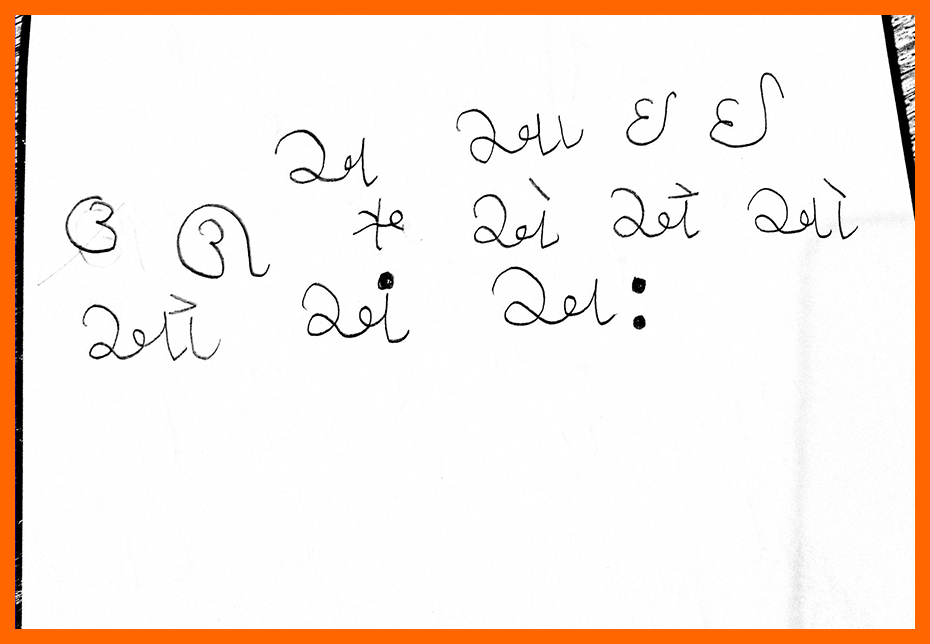 અ આ ઇ ઈ
ઉ ઊ ઋ એ ઐ ઓ
ઔ અં અ: